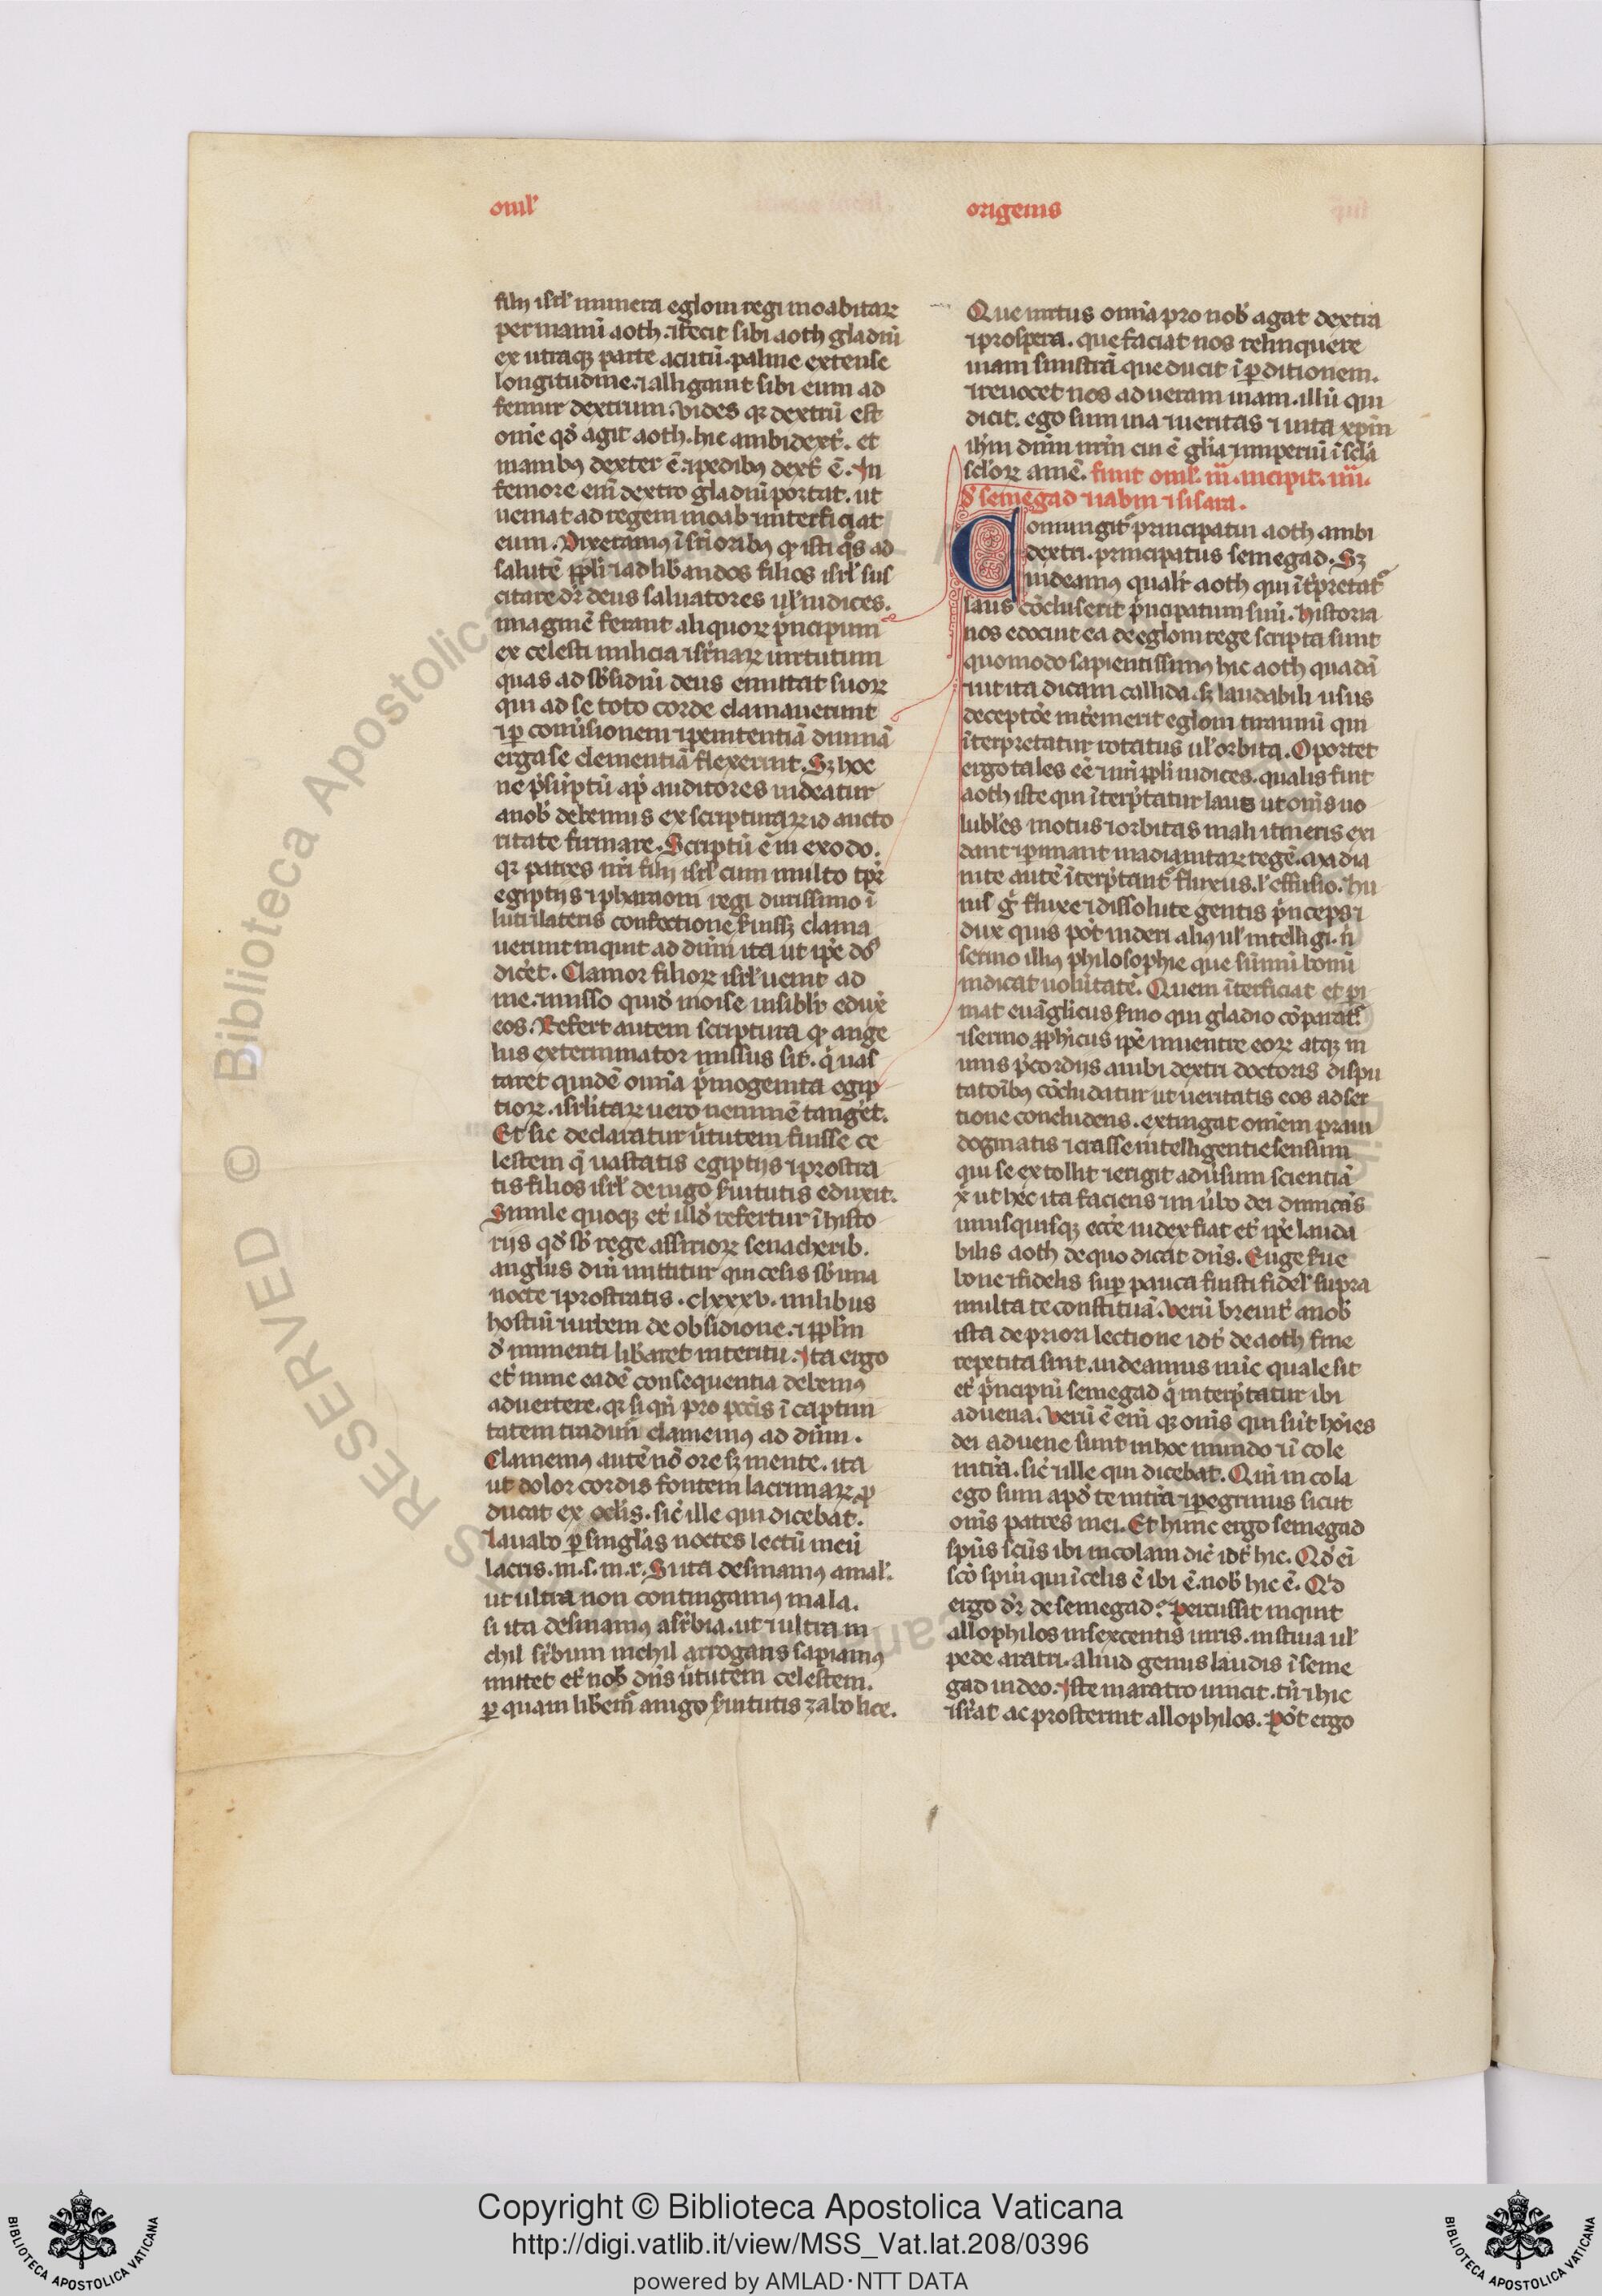 omił
origenis
filij isrł munera eglom regi moabitaꝝ
per manū aoth. ⁊ fecit sibi aoth gladiū
ex utraqꝫ parte acutū. palme extense
longitudine. ⁊ alligauit sibi eum ad
femur dextrum. Vides qꝛ dextrū est
om̄e qd̓ agit aoth. hic ambidext̓. et
manibꝰ dexter ē. ⁊ pedibꝰ dext̓ ē. In
femore eni͂ dextro gladiū portat. ut
ueniat ad regem moab ⁊ interficiat
eum. Dixeramꝰ ī sꝑioribꝰ ꝙ isti q̓s ad
salutē ppłi ⁊ ad lib̓andos filios isrł sus
citare dr̄ deus saluatores uł iudices.
imaginē ferant aliquoꝝ p̓ncipum
ex celesti milicia ⁊ sup̓naꝝ uirtutum
quas ad sb̓sidiū deus emittat suoꝝ
qui ad se toto corde clamauerunt
⁊ ꝑ conu̓sionem ⁊ penitentiā diuinā
erga se clementiā flexerint. Sꝫ hoc
ne p̓sūptū ap̓ auditores uideatur
a nob̓ debemus ex scripturaꝝ id aucto
ritate firmare. Scriptū ē in exodo.
qꝛ patres nr̄i filij isrł cum multo tp̄r
egiptijs ⁊ pharaoni regi durissimo ī
luti ⁊ lateris confectione s̓uissꝫ clama
uerunt inquit ad dn̄m ita ut ip̄e ds̓
dic̓et. Clamor filioꝝ isrł uenit ad
me. ⁊ misso quid̓ moise uisibilr̓ eduxi
eos. Refert autem scriptura ꝙ ange
lus exterminator missus sit. q̓ uas
taret quidē om̄ia p̓mogenita egip
tioꝝ. isrłitaꝝ uero neminē tang̓et.
Et sic declaratur u̓tutem fuisse ce
lestem q̄ uastatis egiptijs ⁊ prostra
tis filios isrł de iugo s̓uitutis eduxit.
Simile quoqꝫ et̓ illd̓ refertur ī histo
rijs qd̓ sb̓ rege assirioꝝ senacherib.
angl̓us dn̄i mittitur qui celis sb̓ una
nocte ⁊ prostratis. clxxxv. milibus
hostiū ⁊ urbem de obsidione. ⁊ ppłm
d̓ imminenti lib̓aret interitu. Ita ergo
et̓ nunc eadē consequentia debemꝰ
aduertere. qꝛ si qn̄ pro pctīs ī captiui
tatem tradim̓ clamemꝰ ad dn̄m.
Clamemꝰ autē nō ore sꝫ mente. ita
ut dolor cordis fontem lacrimaꝝ ꝓ
ducat ex oclīs. sic̓ ille qui dicebat.
Lauabo ꝑ singl̓as noctes lectū meū
lacris. m. s. m. r. Si ita desinamꝰ a mal̓.
ut ultra non contingamꝰ mala.
si ita desinamꝰ a suꝑbia. ut ⁊ ultra ni
chil suꝑbum nichil arrogans sapiamꝰ
mittet et̓ nob̓ dn̄s u̓tutem celestem.
ꝑ quam lib̓em̓ a iugo s̓uitutis zabolice.
Que intus om̄ia pro nob̓ agat dextra
⁊ prospera. que faciat nos relinquere
uiam sinistrā que ducit ī ꝑditionem.
⁊ reuocet nos ad ueram uiam. illū qui
dicit. ego sum uia ⁊ ueritas ⁊ uita xp̄m
ih̄m dn̄m nr̄m cui ē gl̓ia ⁊ imperiū ī scl̓a
scl̓oꝝ amē. finit omił. iii. incipit. iiii.
d̓ semegad ⁊ iabin ⁊ sisara.
Coniungit᷑ principatui aoth ambi
dextri. principatus semegad. Sꝫ
uideamꝰ qualit̓ aoth qui īt̓pretat᷑
laus cōcluserit p̓ncipatum suū. Historia
nos edocuit ea de eglom rege scripta sunt
quomodo sapientissimꝰ hic aoth quadā
⁊ ut ita dicam callida. sꝫ laudabili usus
deceptōe int̓emerit eglom tirannū qui
īterpretatur rotatus uł orbita. Oportet
ergo tales eē ⁊ nr̄i ppłi iudices. qualis fuit
aoth iste qui īterp̓tatur laus ut om̄s uo
lubl̓es motus ⁊ orbitas mali itineris exi
dant ⁊ ꝑimant madianitaꝝ regē. Madia
nite autē īterp̓tant᷑ fluxus. l̓ effusio. Hu
ius g̓ fluxe ⁊ dissolute gentis p̓nceps ⁊
dux quis pōt uideri aliꝰ uł intelligi. n̄
sermo illiꝰ philosophie que sūmū bonū
iudicat uolūtatē. Quem īterficiat et ꝑi
mat euāglicus s̓mo qui gladio cōparat᷑.
⁊ sermo pphicus ip̄e in uentre eoꝝ atqꝫ in
imis p̓cordijs ambi dextri doctoris dispu
tatoībꝰ cōcludatur ut ueritatis eos adser
tione concludens. extingat om̄em praui
dogmatis ⁊ crasse intelligentie sensum
qui se extollit ⁊ erigit adu̓sum scientiā
x̓ ut hec ita faciens ⁊ in u̓bo dei dimicās
unusquisqꝫ ecc̓e iudex fiat et̓ ip̄e lauda
bilis aoth de quo dicat dn̄s. Euge s̓ue
bone ⁊ fidelis suꝑ pauca fuisti fidel̓ supra
multa te constituā. Verū breuit̓ a nob̓
ista de priori lectione id̓t de aoth fine
repetita sint. uideamus nūc quale sit
et̓ p̓ncipiū semegad q̄ interp̓tatur ibi
aduena. Verū ē eni͂ qꝛ om̄s qui sūt hōies
dei aduene sunt in hoc mundo ⁊ ī cole
in tr̄a. sic̓ ⁊ ille qui dicebat. Qm̄ in cola
ego sum apd̓ te in tr̄a ⁊ pegrinus sicut
om̄s patres mei. Et hunc ergo semegad
spūs scūs ibi incolam dic̓ id̓t hic. Qd̓ eī
scō spūi qui ī celis ē ibi ē. nob̓ hic ē. Qd̓
ergo dr̄ de semegad? Percussit inquit
allophilos in sexcentis uiris. in stiua uł
pede aratri. aliud genus laudis ī seme
gad uideo. Iste in aratro uincit. tn̄ ⁊ hic
isr̓at ac prosternit allophilos. Pōt ergo
Copyright © Biblioteca Apostolica Vaticana
http://digi.vatlib.it/view/MSS_Vat.lat.208/0396
powered by AMLAD·NTT DATA
BIBLIOTECA APOSTOLICA VATICANA
BIBLIOTECA APOSTOLICA VATICANA